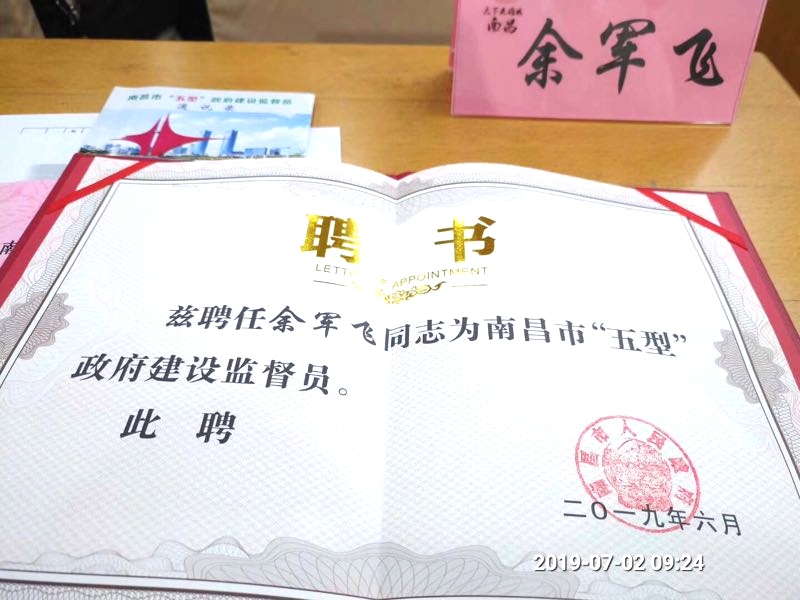 天下英雄城
南昌
余军飞
南昌市“五型”政府建设监督员
通讯录
南
聘书
LETTER OF APPOINTMENT
兹聘任余军飞同志为南昌市“五型”
政府建设监督员。
此聘
南昌市人民政府
二〇一九年六月
2019-07-02 09:24